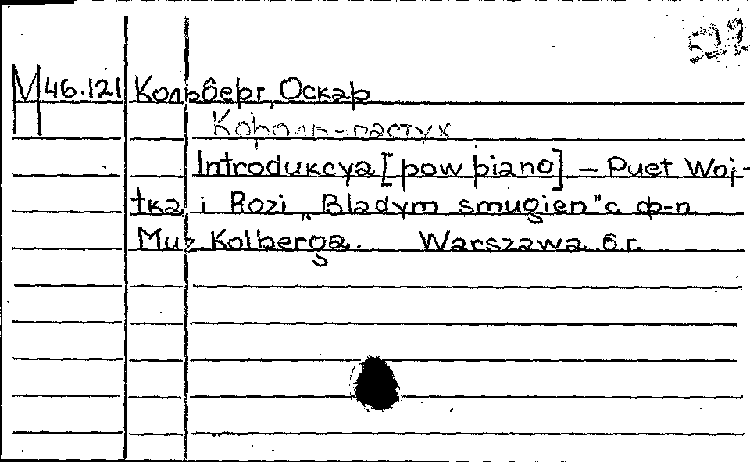 522
М 46.121 Кольберг, Оскар
Король-пастух
Introdukcya [pow piano] – Duet Woj-
tka i Rozi „Bladym smugien" с ф-п
Muz Kolberga. Warszawa б.г.